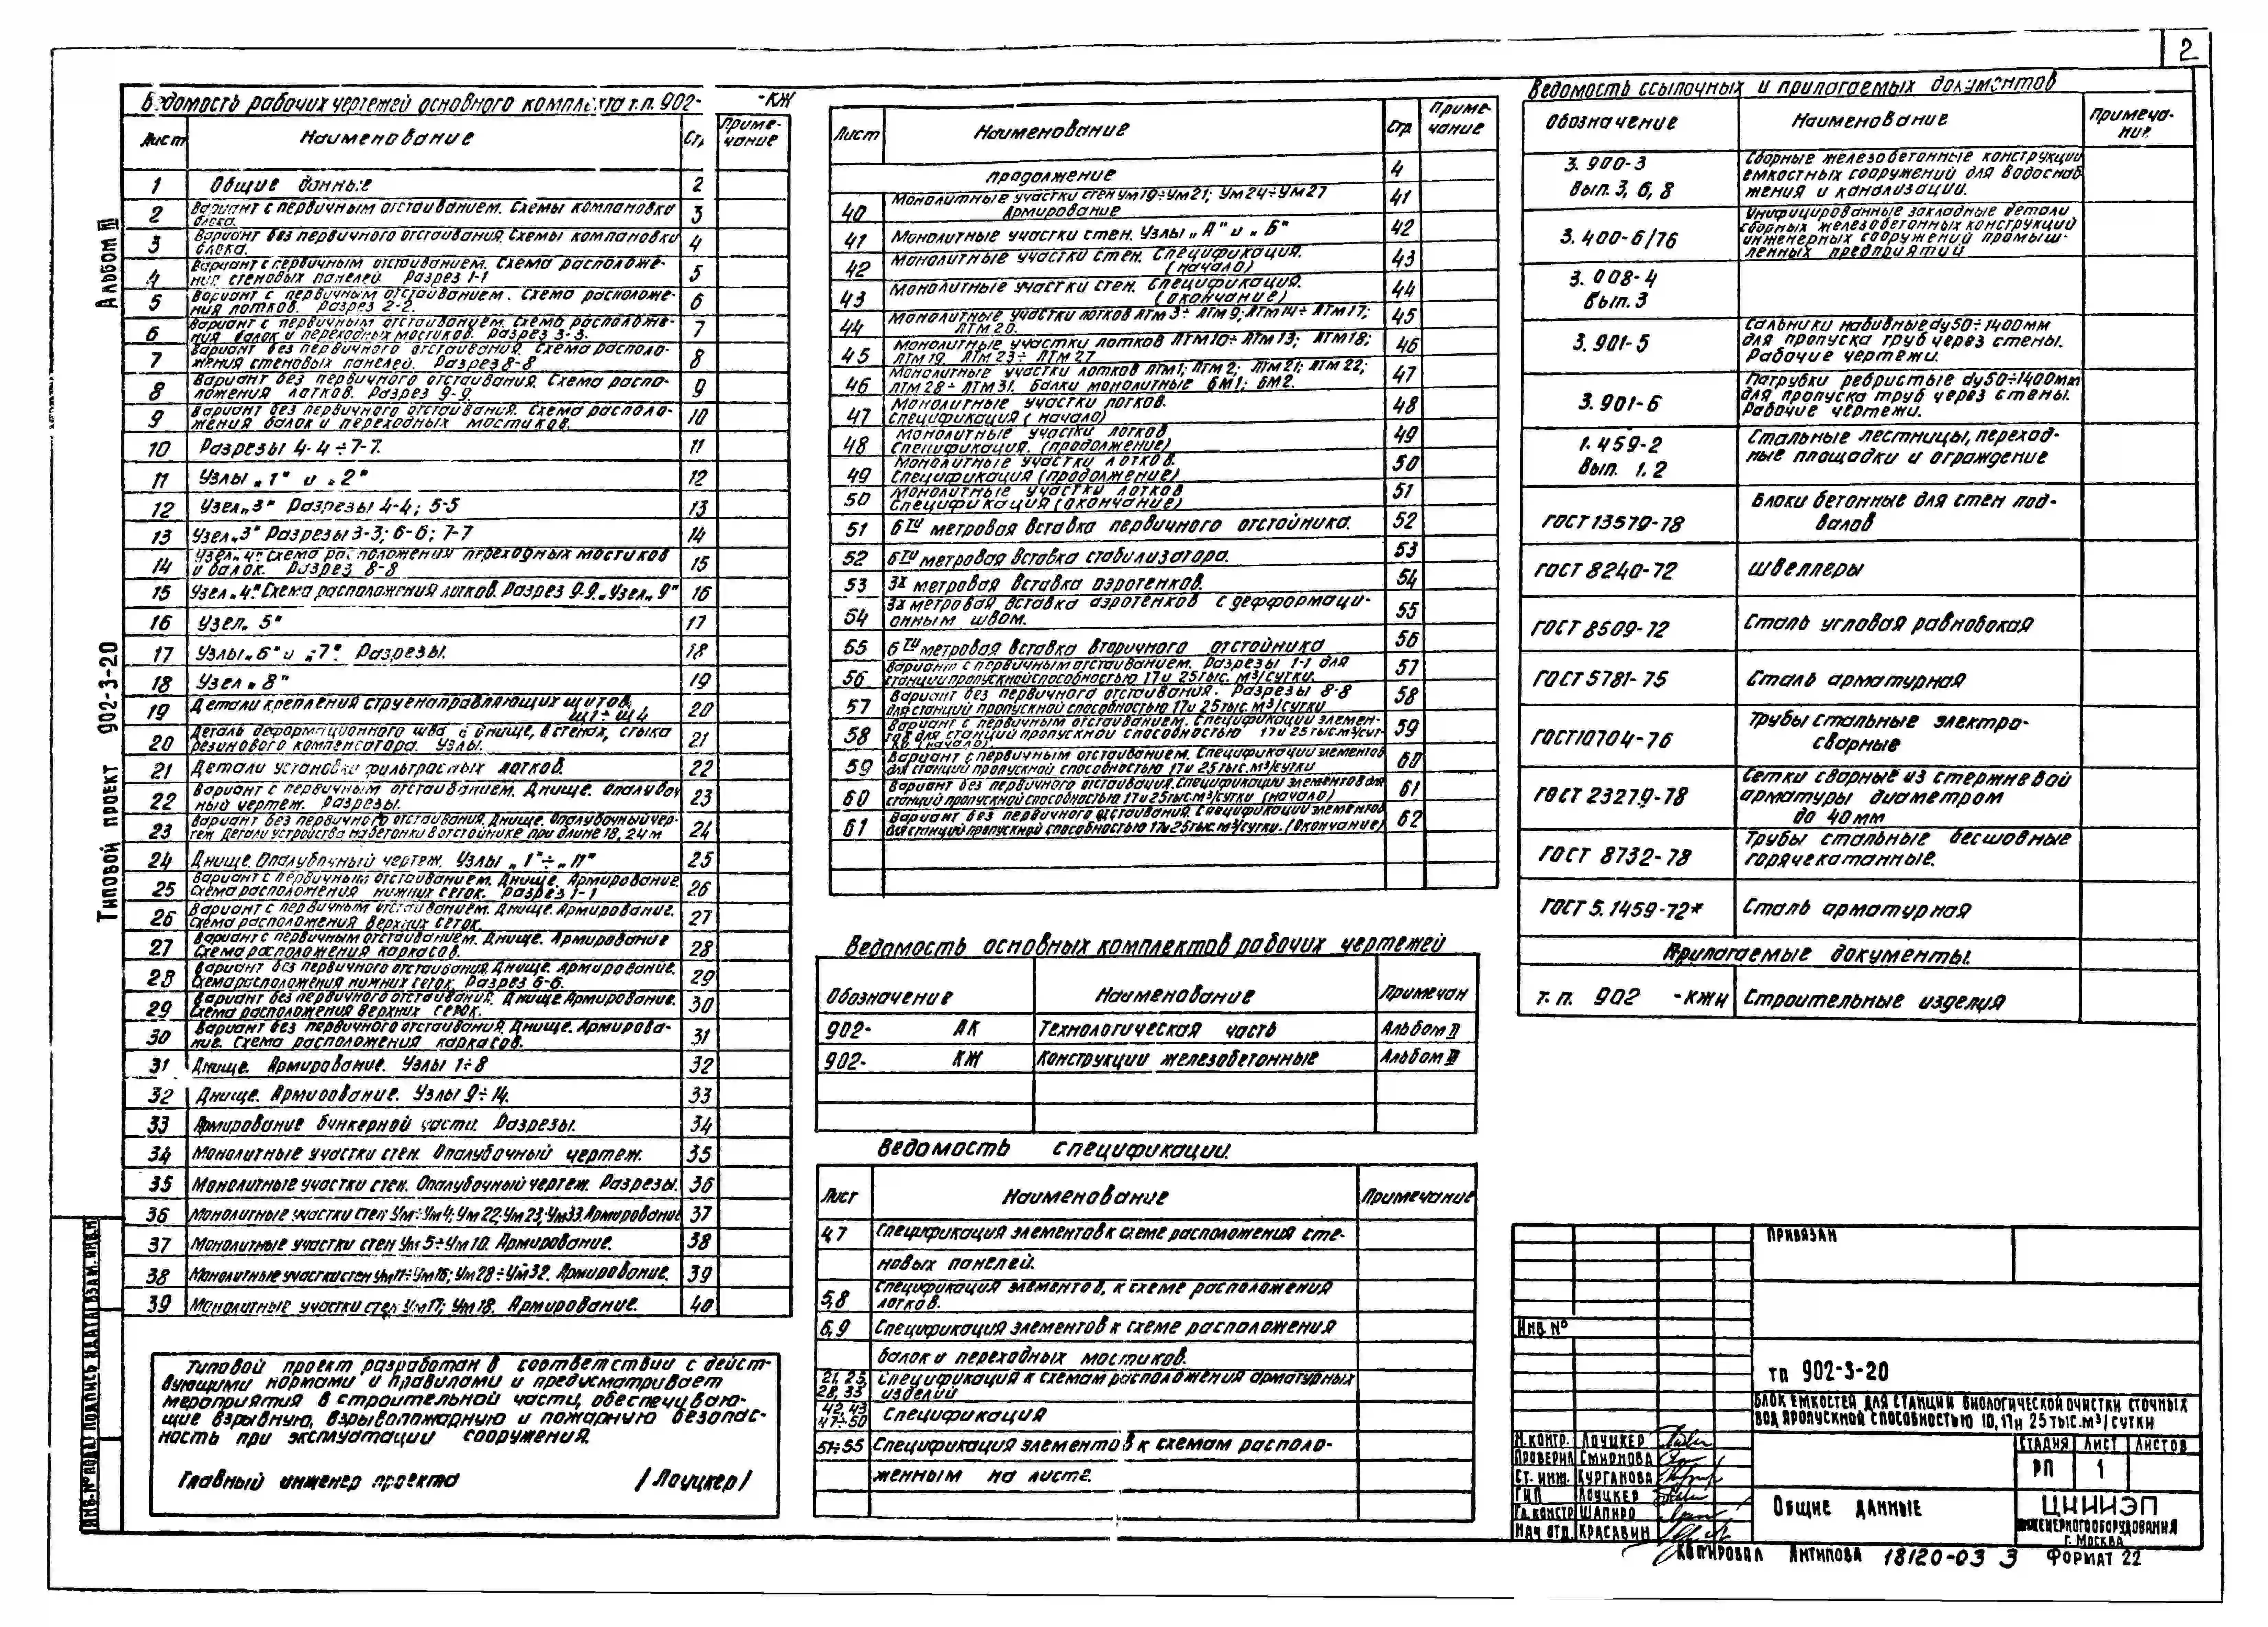 2
Альбом III
Типовой проект 902-3-20
Ведомость рабочих чертежей основного комплекта т.п. 902- -КЖ
Лист Наименование Стр. Приме-
чание
1 Общие данные 2
2 Вариант с первичным отстаиванием. Схемы компановки
блока. 3
3 Вариант без первичного отстаивания. Схемы компановки
блока. 4
4 Вариант с первичным отстаиванием. Схема расположе-
ния стеновых панелей Разрез 1-1 5
5 Вариант с первичным отстаиванием. Схема расположе-
ния лотков. Разрез 2-2. 6
6 Вариант с первичным отстаиванием. Схема расположе-
ния балок и переходных мостиков. Разрез 3-3. 7
7 Вариант без первичного отстаивания. Схема располо-
жения стеновых панелей. Разрез 8-8 8
8 Вариант без первичного отстаивания. Схема распо-
ложения лотков. Разрез 9-9 9
9 Вариант без первичного отстаивания. Схема располо-
жения балок и переходных мостиков. 10
10 Разрезы 4-4÷7-7. 11
11 Узлы „1" и „2" 12
12 Узел „3" Разрезы 4-4; 5-5 13
13 Узел „3" Разрезы 3-3; 6-6; 7-7 14
14 Узел „4" Схема расположения переходных мостиков
и балок. Разрез 8-8 15
15 Узел „4". Схема расположения лотков. Разрез 9-9. „Узел „9" 16
16 Узел „5" 17
17 Узлы „6" и „7". Разрезы. 18
18 Узел „8" 19
19 Детали крепления струенаправляющих щитов
Щ1÷Щ4 20
20 Деталь деформационного шва в днище, в стенах, стыка
резинового компенсатора. Узлы. 21
21 Детали установки фильтрасных лотков. 22
22 Вариант с первичным отстаиванием. Днище. Опалубоч
ный чертеж. Разрезы. 23
23 Вариант без первичного отстаивания. Днище. Опалубочный чер-
теж Детали устройства набетонки в отстойнике при длине 18, 24 м 24
24 Днище. Опалубочный чертеж. Узлы „1"÷„11" 25
25 Вариант с первичным отстаиванием. Днище. Армирование.
Схема расположения нижних сеток. Разрез 1-1 26
26 Вариант с первичным отстаиванием. Днище. Армирование.
Схема расположения верхних сеток. 27
27 Вариант с первичным отстаиванием. Днище. Армирование
Схема расположения каркасов. 28
28 Вариант без первичного отстаивания. Днище. Армирование.
Схема расположения нижних сеток. Разрез 6-6. 29
29 Вариант без первичного отстаивания. Днище Армирование.
Схема расположения верхних сеток. 30
30 Вариант без первичного отстаивания. Днище. Армирова-
ние. Схема расположения каркасов. 31
31 Днище. Армирование. Узлы 1÷8 32
32 Днище. Армирование. Узлы 9÷14. 33
33 Армирование бункерной части. Разрезы. 34
34 Монолитные участки стен. Опалубочный чертеж. 35
35 Монолитные участки стен. Опалубочный чертеж. Разрезы. 36
36 Монолитные участки стен Ум1÷Ум4; Ум22; Ум23; Ум33. Армирование 37
37 Монолитные участки стен Ум5÷Ум10. Армирование. 38
38 Монолитные участки стен Ум11÷Ум16; Ум28÷Ум32. Армирование. 39
39 Монолитные участки стен Ум17; Ум18. Армирование. 40
Типовой проект разработан в соответствии с дейст-
вующими нормами и правилами и предусматривает
мероприятия в строительной части, обеспечиваю-
щие взрывную, взрывопожарную и пожарную безопас-
ность при эксплуатации сооружения.
Главный инженер проекта /Лоуцкер/
Инв. № подл. Подпись и дата Взам. инв. №
Лист Наименование Стр Приме-
чание
продолжение 4
40 Монолитные участки стен Ум19÷Ум21; Ум24÷Ум27
Армирование 41
41 Монолитные участки стен. Узлы „А" и „Б" 42
42 Монолитные участки стен. Спецификация.
(начало) 43
43 Монолитные участки стен. Спецификация.
(окончание) 44
44 Монолитные участки лотков ЛТм3÷ЛТм9; ЛТм14÷ЛТм17;
ЛТм20. 45
45 Монолитные участки лотков ЛТм10÷ЛТм13; ЛТм18;
ЛТм19, ЛТм23÷ЛТм27 46
46 Монолитные участки лотков ЛТм1; ЛТм2; ЛТм21; ЛТм22;
ЛТм28÷ЛТм31. Балки монолитные БМ1; БМ2. 47
47 Монолитные участки лотков.
Спецификация (начало) 48
48 Монолитные участки лотков
Спецификация. (продолжение) 49
49 Монолитные участки лотков.
Спецификация (продолжение) 50
50 Монолитные участки лотков
Спецификация (окончание) 51
51 6ти метровая вставка первичного отстойника. 52
52 6ти метровая вставка стабилизатора. 53
53 3х метровая вставка аэротенков. 54
54 3х метровая вставка аэротенков с дефформаци-
онным швом. 55
55 6ти метровая вставка вторичного отстойника 56
56 Вариант с первичным отстаиванием. Разрезы 1-1 для
станции пропускной способностью 17 и 25 тыс. м³/сутки. 57
57 Вариант без первичного отстаивания. Разрезы 8-8
для станций пропускной способностью 17 и 25 тыс. м³/сутки 58
58 Вариант с первичным отстаиванием. Спецификации элемен-
тов для станции пропускной способностью 17 и 25 тыс м³/сут-
ки (начало). 59
59 Вариант с первичным отстаиванием. Спецификации элементов
для станций пропускной способностью 17 и 25 тыс. м³/сутки 60
60 Вариант без первичного отстаивания. Спецификации элементов для
станций пропускной способностью 17 и 25 тыс. м³/сутки (начало) 61
61 Вариант без первичного отстаивания. Спецификации элементов
для станций пропускной способностью 17 и 25 тыс. м³/сутки. (Окончание) 62
Ведомость основных комплектов рабочих чертежей
Обозначение Наименование Примечан
902- АК Технологическая часть Альбом II
902- КЖ Конструкции железобетонные Альбом III
Ведомость спецификации.
Лист Наименование Примечание
4,7 Спецификация элементов к схеме расположения сте-
новых панелей.
5,8 Спецификация элементов, к схеме расположения
лотков.
6,9 Спецификация элементов к схеме расположения
балок и переходных мостиков.
21, 25 Спецификация к схемам расположения арматурных
28, 33 изделий
42, 43
47÷50 Спецификация
51÷55 Спецификация элементов к схемам располо-
женным на листе.
Ведомость ссылочных и прилагаемых документов
Обозначение Наименование Примеча-
ние
3.900-3
Вып. 3, 6, 8
Сборные железобетонные конструкции
емкостных сооружений для водоснаб
жения и канализации.
3.400-6/76
Унифицированные закладные детали
сборных железобетонных конструкций
инженерных сооружений промыш-
ленных предприятий
3.008-4
Вып. 3
3.901-5
Сальники набивные dу50÷1400мм
для пропуска труб через стены.
Рабочие чертежи.
3.901-6
Патрубки ребристые dу50÷1400мм
для пропуска труб через стены.
Рабочие чертежи.
1.459-2
Вып. 1.2
Стальные лестницы, переход-
ные площадки и ограждение
ГОСТ 13579-78 Блоки бетонные для стен под-
валов
ГОСТ 8240-72 Швеллеры
ГОСТ 8509-72 Сталь угловая равнобокая
ГОСТ 5781-75 Сталь арматурная
ГОСТ 10704-76 Трубы стальные электро-
сварные
ГОСТ 23279-78 Сетки сварные из стержневой
арматуры диаметром
до 40мм
ГОСТ 8732-78 Трубы стальные бесшовные
горячекатанные.
ГОСТ 5.1459-72* Сталь арматурная
Прилагаемые документы.
т.п. 902 -КЖИ Строительные изделия
Привязан
Инв. №
ТП 902-3-20
Блок емкостей для станции биологической очистки сточных
вод пропускной способностью 10, 17 и 25 тыс. м³/сутки
Н. контр. Лоуцкер
Проверил Смирнова
Ст. инж. Курганова
ГИП Лоуцкер
Гл. констр Шапиро
Нач отд. Красавин
Стадия Лист Листов
РП 1
Общие данные
ЦНИИЭП
инженерного оборудования
г. Москва
Копировал Антипова 18120-03 3 Формат 22